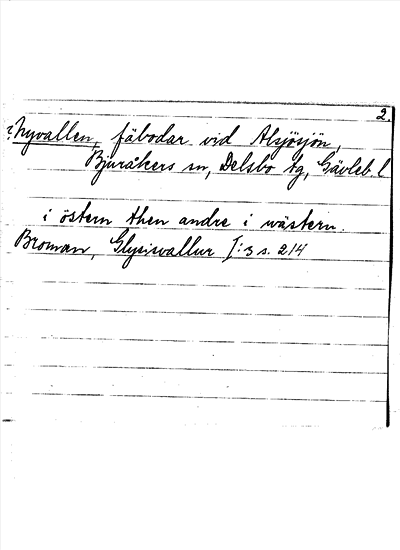 2.
? Nyvallen, fäbodar vid Alsjösjön,
Bjuråkers sn, Delsbo tg, Gävleb. l
i östern then andre i wästern.
Broman, Glysisvallur I:3 s. 214